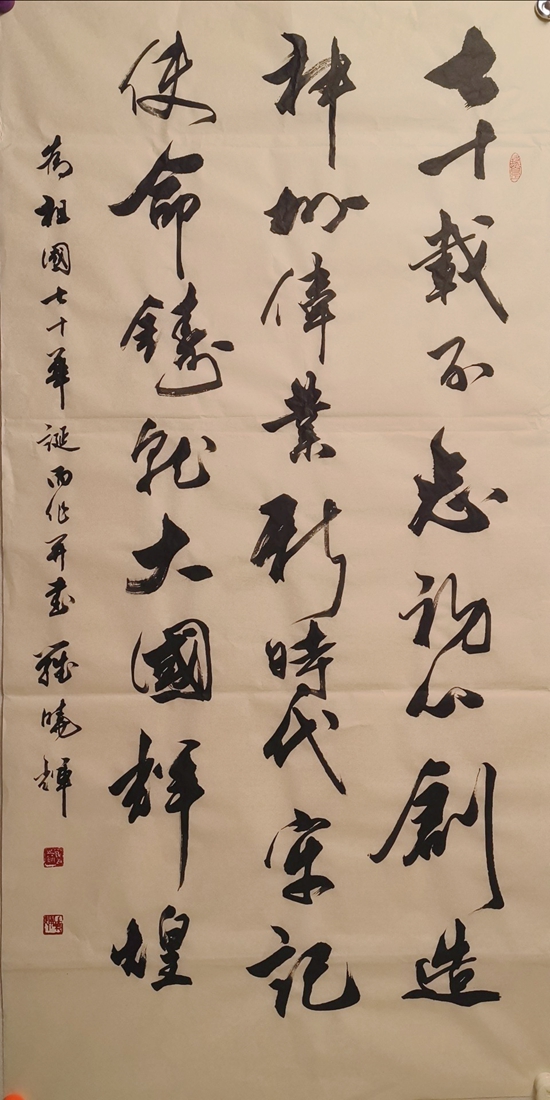 七十載不忘初心創造
神州偉業新時代牢記
使命鑄就大國輝煌
為祖國七十華誕而作并書 曉輝